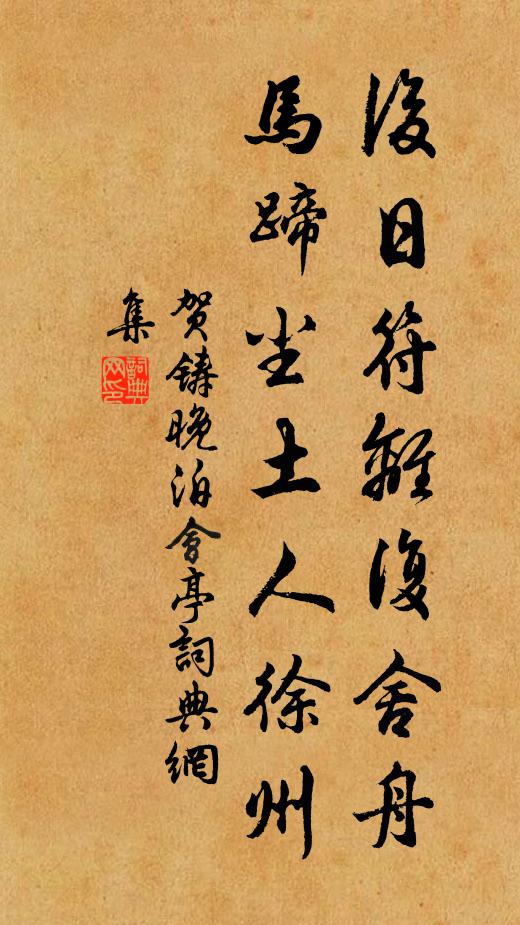 後日符離復舍舟
馬蹄尘土人徐州
贺鑄晚泊會亭詞典網
集
詞典
网印